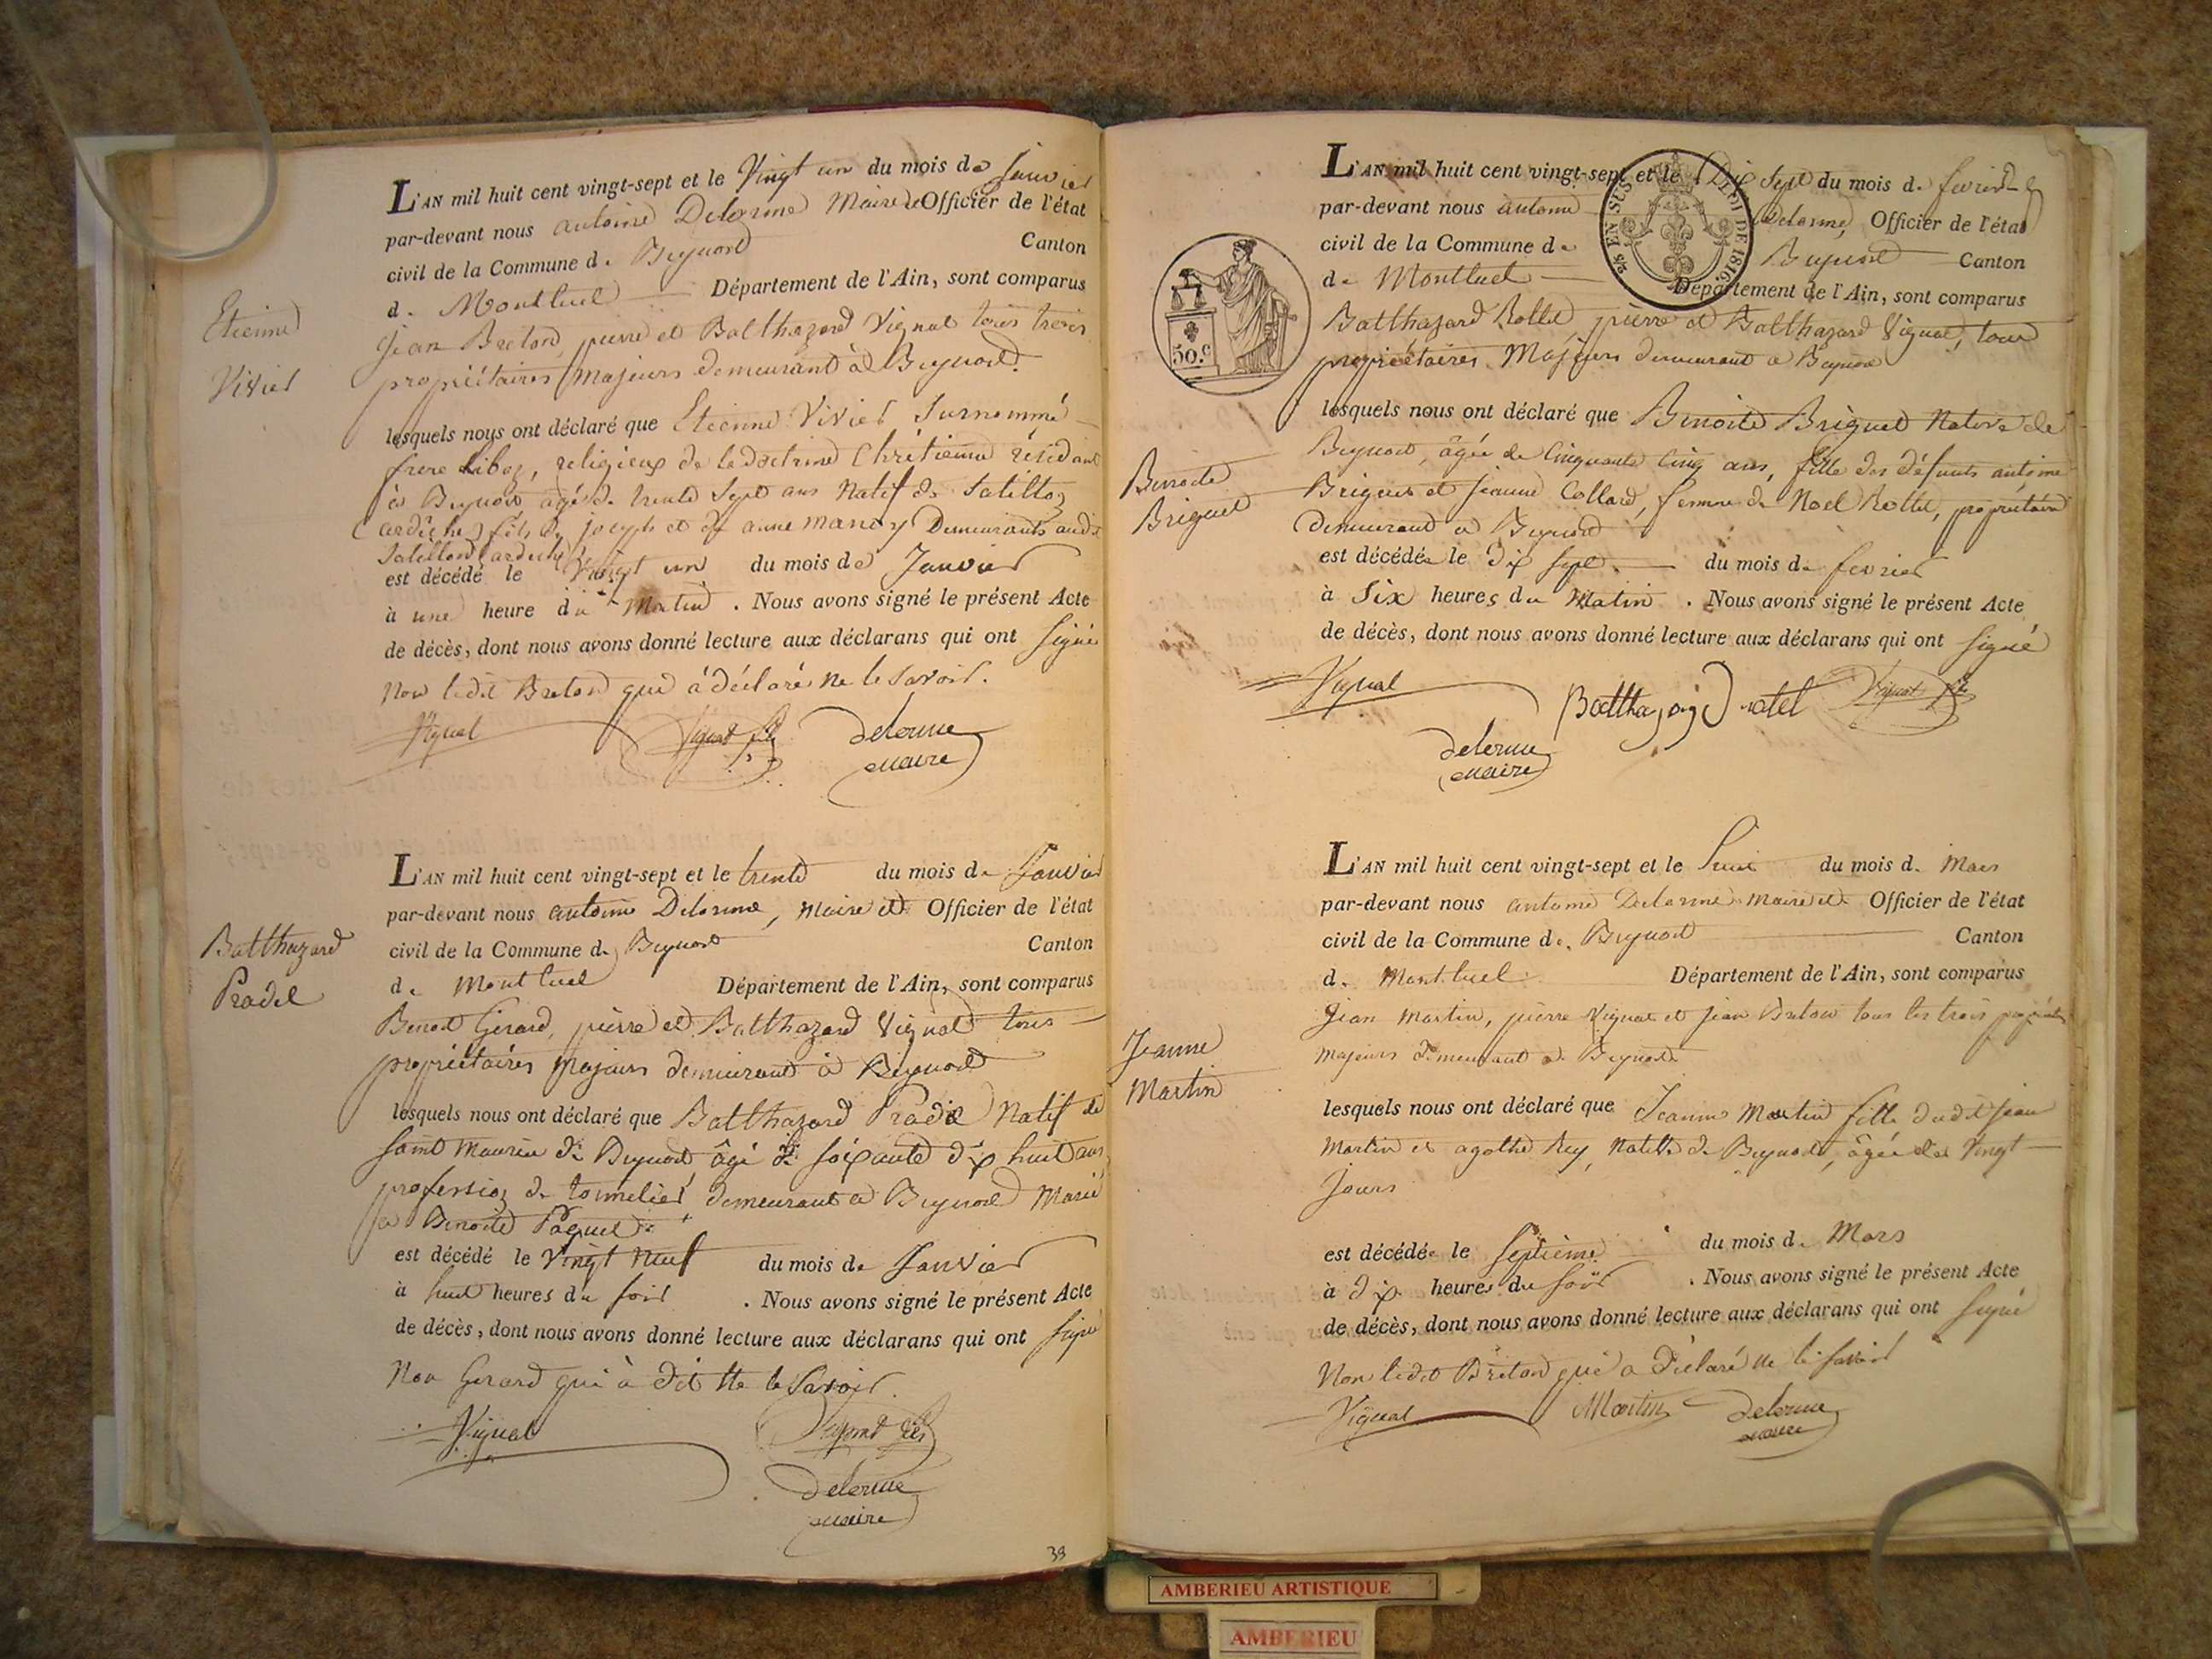 Etienne
Vivier
L'AN mil huit cent vingt-sept et le Vingt un du mois de Janvier
par-devant nous antoine Delorme Maire et Officier de l'état
civil de la Commune de Beynost Canton
de Montluel Département de l'Ain, sont comparus
Jean Breton, pierre et Balthazard Vignat tous trois
propriétaires majeurs demeurant à Beynost.
lesquels nous ont déclaré que Etienne Vivier Surnommé
frere, religieux de la doctrine Chrétienne résidant
à Beynost agé de trente Sept ans Natif de Satillon
(ardêche) fils de joseph et de anne mandy Demeurants audit
Satillon (ardeche)
est décédé le Vingt un du mois de Janvier
à une heure du Matin. Nous avons signé le présent Acte
de décès, dont nous avons donné lecture aux déclarans qui ont signé
Non ledit Breton qui à déclaré ne le Savoir.
Vignat Vignat fils delorme
maire
Balthazard
Pradel
L'AN mil huit cent vingt-sept et le trente du mois de Janvier
par-devant nous antoine Delorme, Maire et Officier de l'état
civil de la Commune de Beynost Canton
de Montluel Département de l'Ain, sont comparus
Benoit Gerard, pierre et Balthazard Vignat tous
propriétaires Majeurs demeurant à Beynost
lesquels nous ont déclaré que Balthazard Pradel Natif de
Saint Maurice de Beynost, âgé de soixante dix huit ans
profession de tonnelier demeurant a Beynost Marié
a Benoite Paquet
est décédé le Vingt Neuf du mois de Janvier
à huit heures du soir. Nous avons signé le présent Acte
de décès, dont nous avons donné lecture aux déclarans qui ont signé
Non Gerard qui à dit Ne le Savoir.
Vignat Vignat fils
delorme
maire
39
50.c
2/5 EN SUS LOI DE 1816.
Benoite
Briguet
L'AN mil huit cent vingt-sept et le Dix Sept du mois de fevrier
par-devant nous antoine Delorme, Officier de l'état
civil de la Commune de Beynost Canton
de Montluel Département de l'Ain, sont comparus
Balthazard Rottel, pierre et Balthazard Vignat, tous
propriétaires Majeurs demeurant a Beynost
lesquels nous ont déclaré que Benoite Briguet Native de
Beynost, âgée de Cinquante Cinq ans, fille des défunts antoine
Briguet et Jeanne Collard, femme de Noel Rottel, propriétaire
demeurant a Beynost
est décédée le dix sept du mois de fevrier
à Six heures du Matin. Nous avons signé le présent Acte
de décès, dont nous avons donné lecture aux déclarans qui ont signé
Vignat Balthazard Vignat fils
delorme
maire
Jeanne
Martin
L'AN mil huit cent vingt-sept et le du mois de Mars
par-devant nous antoine Delorme maire et Officier de l'état
civil de la Commune de Beynost Canton
de Montluel Département de l'Ain, sont comparus
Jean Martin, pierre Vignat et Jean Breton tous les trois propriétaires
majeurs demeurant a Beynost
lesquels nous ont déclaré que Jeanne Martin fille dudit Jean
Martin et agathe Rey, Native de Beynost, âgée de Vingt
Jours
est décédée le septième du mois de Mars
à dix heures du soir. Nous avons signé le présent Acte
de décès, dont nous avons donné lecture aux déclarans qui ont signé
Non ledit Breton qui a déclaré ne le savoir
Vignat Martin delorme
maire
AMBERIEU ARTISTIQUE
AMBERIEU